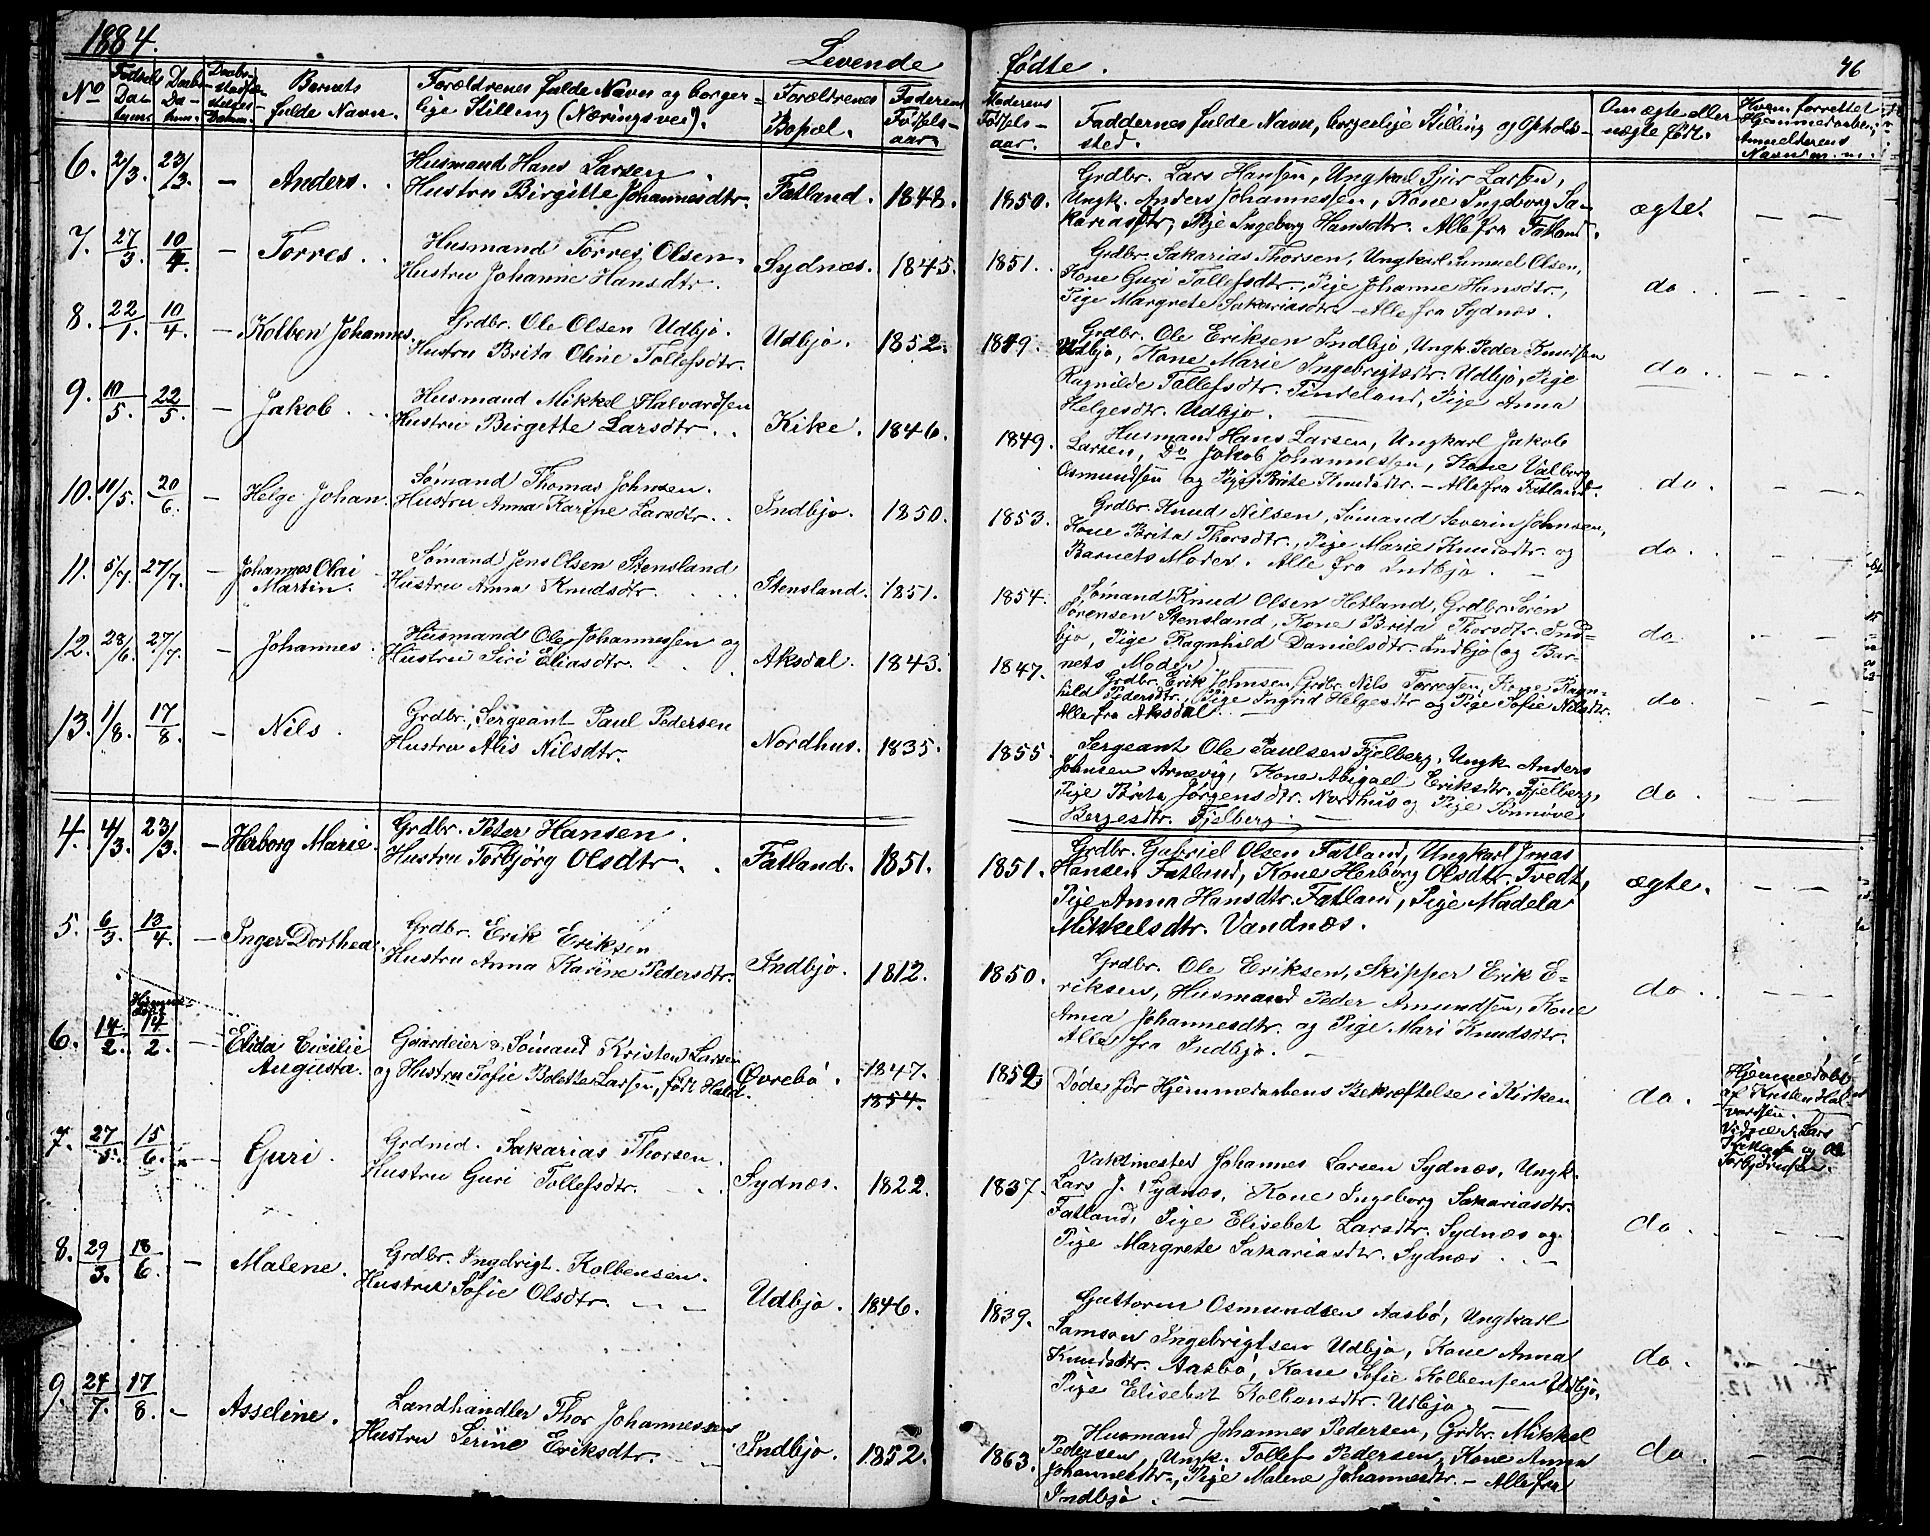 1884.
Levende
fødte.
46
No
Fødsels Datum.
Daabs Datum.
Barnets fulde Navn.
Forældrenes fulde Navn og borgerlige Stilling (Næringsvei).
Forældrenes Bopæl.
Faderens Fødselsaar.
Moderens Fødselsaar.
Faddernes fulde Navn, borgerlige Stilling og Opholdssted.
Om ægte eller uægte født.
Hvem forrettet Hjemmedaaben, Anmelderens Navn m.m.
6. 2/3. 23/3. — Anders.
Husmand Hans Larsen,
Hustru Birgitte Johannesdtr.
Fatland. 1848.
1850.
Grdbr. Lars Hansen, Ungkarl Sjur Larsen,
Ungk. Anders Johannessen, Kone Ingeborg Sa-
kariasdtr, Pige Ingeborg Hansdtr. Alle fra Fatland.
ægte. — —
7. 27/3 10/4 — Torres
Husmand Torres Olsen
Hustru Johanne Hansdtr.
Sydnæs. 1845.
1851.
Grdbr. Sakarias Thorsen, Ungkarl Samuel Olsen,
Kone Guri Tollefsdtr., Pige Johanne Hansdtr.,
Pige Margrete Sakariasdtr. Alle fra Sydnæs.
do. — —
8. 22/1. 10/4. — Kolben Johannes.
Grdbr. Ole Olsen Udbjø.
Hustru Brita Oline Tollefsdtr.
Udbjø. 1852.
1849.
Grdbr. Ole Eriksen Indbjø, Ungk. Peder Knudsen
Udbjø, Kone Marie Ingebrigtsdtr. Udbjø, Pige
Ragnilde Tollefsdtr. Tindeland, Pige Anna
Helgesdtr. Udbjø.
do. — —
9. 10/5. 22/5 — Jakob
Husmand Mikkel Halvardsen
Hustru Birgitte Larsdtr.
Kike. 1846.
1849.
Husmand Hans Larsen, Ungkarl Jakob
Larsen, Do Jakob Johannessen, Kone Valborg
Osmundsen og Pige Brite Knudsdtr. — Alle fra Fatland.
do. — —
10. 11/5. 20/6 — Helge Johan.
Sømand Thomas Johnsen.
Hustru Anna Karine Larsdtr.
Indbjø. 1850.
1853.
Grdbr. Knud Nilsen, Sømand Severin Johnsen,
Kone Brita Thorsdtr., Pige Marie Knudsdtr. og
Barnets Moder. Alle fra Indbjø.
do. — —
11. 5/7. 27/7. — Johannes Olai
Martin.
Sømand Jens Olsen Stensland
Hustru Anna Knudsdtr.
Stensland. 1851.
1854.
Sømand Knud Olsen Hetland, Grdbr. Søren
Sørensen Stensland, Kone Brita Thorsdtr. Ind-
bjø, Pige Ragnhild Danielsdtr. Indbjø (og Bar-
nets Moder)
do. — —
12. 28/6. 27/7. — Johannes
Husmand Ole Johannessen og
Hustru Siri Eliasdtr.
Aksdal. 1843.
1847.
Grdbr. Erik Johnsen, Grdbr. Nils Torresen, Kone Ragn-
hild Pedersdtr., Pige Ingrid Helgesdtr og Pige Sofie Nilsdtr.
Alle fra Aksdal.
do. — —
13. 1/8. 17/8. — Nils
Grdbr., Sergeant Paul Pedersen
Hustru Alis Nilsdtr.
Nordhus. 1835.
1855.
Sergeant Ole Paulsen Fjelberg, Ungk. Anders
Johnsen Arnevig, Kone Abigael Eriksdtr. Fjelberg,
Pige Brita Jørgensdtr. Nordhus og Pige Sønnøve
Bergesdtr. Fjelberg.
do. — —
4. 4/3. 23/3. — Herborg Marie
Grdbr. Peter Hansen.
Hustru Torbjørg Olsdtr.
Fatland. 1851.
1851.
Grdbr. Gabriel Olsen Fatland, Ungkarl Jonas
Hansen Fatland, Kone Herborg Olsdtr. Tvedt,
Pige Anna Hansdtr. Fatland, Pige Madela
Mikkelsdtr. Vandnæs.
ægte. — —
5. 6/3. 13/4. — Inger Dorthea
Grdbr. Erik Eriksen
Hustru Anna Karine Pedersdtr.
Indbjø. 1812.
1850.
Grdbr. Ole Eriksen, Skipper Erik E-
riksen, Husmand Peder Amundsen, Kone
Anna Johannesdtr. og Pige Mari Knudsdtr.
Alle fra Indbjø.
do. — —
6. 14/2. 14/2. — Elida Cicilie
Augusta.
Gaardeier & Sømand Kristen Larsen
og Hustru Sofie Bolette Larsen, født Hald.
Øvrebø. 1847.
1854.
1852
Døde før Hjemmedaabens Bekræftelse i Kirken
do.
Hjemmedøbt
af Kristen Hal
vardsen.
Vidner: Lars
og Ole
Torbjørnsen.
7. 27/5. 15/6. — Guri.
Grdmd. Sakarias Thorsen.
Hustru Guri Tollefsdtr.
Sydnæs. 1822.
1837.
Vaktmester Johannes Larsen Sydnæs, Ungk.
Lars J. Sydnæs, Kone Ingeborg Sakariasdtr.
Fatland, Pige Elisebet Larsdtr. Sydnæs og
Pige Margrete Sakariasdtr. Sydnæs.
do. — —
8. 29/3. 18/6. — Malene.
Grdbr. Ingdrigt Kolbensen.
Hustru Sofie Olsdtr.
Udbjø. 1846.
1839.
Guttorm Osmundsen Aasbø, Ungkarl
Samson Ingebrigtsen Udbjø, Kone Anna
Knudsdtr. Aasbø, Kone Sofie Kolbensen Udbjø,
Pige Elisebet Kolbensdtr. Udbjø
do.
9. 24/7. 17/8. — Asseline.
Landhandler Thor Johannessen
Hustru Serine Eriksdtr.
Indbjø. 1852.
1863.
Husmand Johannes Pedersen, Grdbr. Mikkel
Pedersen, Ungk. Tollef Pedersen, Kone Anna
Johannesdtr., Pige Malene Johannesdtr. — Alle fra
Indbjø.
do. — —